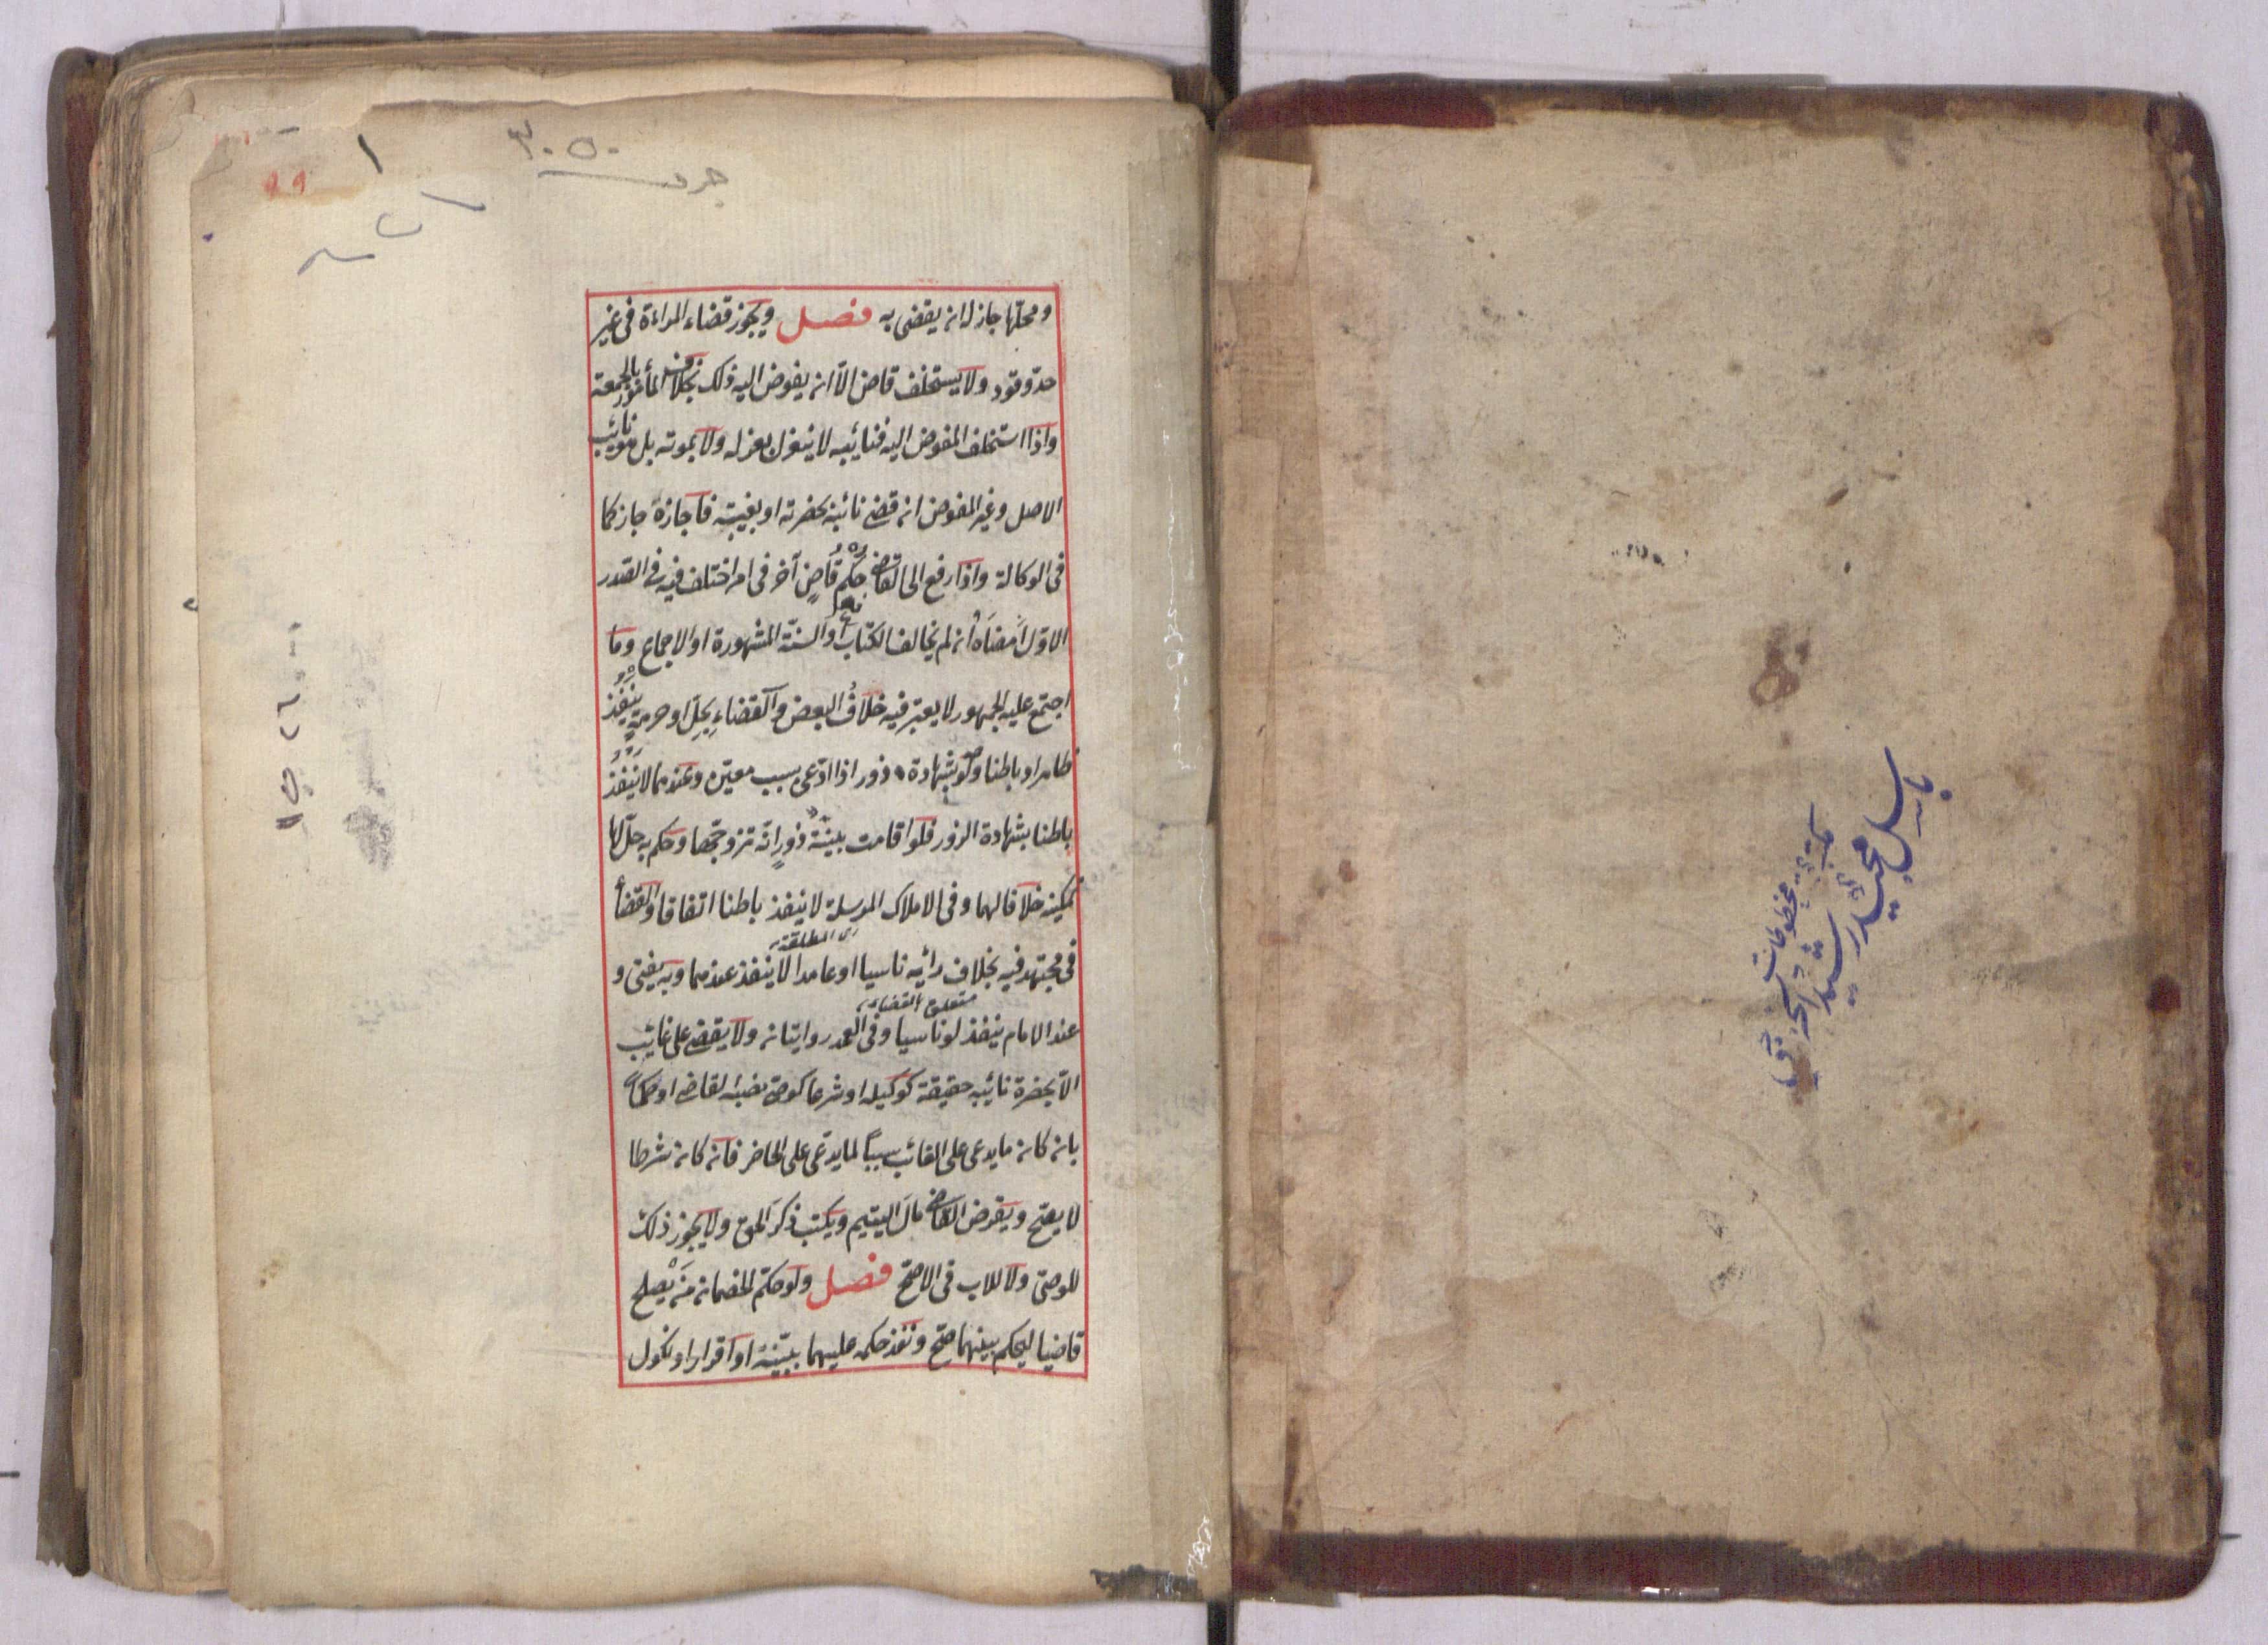 باسل محمد رشيد
مكتبة مخطوطات
٣٠٥٠
١
٩٩
ومحلها جاز له ان يقضى به فصل ويجوز قضاء المراءة فى غير
حدّ وقود ولا يستخلف قاض الاّ ان يفوض اليه ذلك بخلاف المأمور بالجمعة
واذا استخلف المفوض اليه فنائبه لا ينعزل بعزله ولا بموته بل هو نائب
الاصل وغير المفوض ان قضى نائبه بحضرته او بغيبته فاجازه جاز كما
فى الوكالة واذا رفع الى القاضى حُكْمُ قاضٍ آخر فى امر اختلف فيه فى الصدر
الاوّل اَمضَاهُ ان لم يخالف الكتاب او السنّة المشهورة او الاجماع وما
اجتمع عليه الجمهور لا يعتبر فيه خلافُ البعض والقضاءِ بِحِلٍّ او حرمةٍ يَنْفُذُ
ظاهرا وباطنا ولو بشهادة زور اذا ادّعى بسبب معيّن وعندهما لا يَنْفُذُ
باطنا بشهادة الزور فلو اقامت بينةُ زورٍ انّه تزوجها وحكم به حلّ لها
تمكينه خلافا لهما وفى الاملاك المرسلة لا ينفذ باطنا اتفاقا والقضأ
اى المطلقة
فى مجتهد فيه بخلاف رأيه ناسيا او عامدا لا ينفذ عندهما وبه يفتى و
متعلق القضاء
عند الامام ينفذ لو ناسيا وفى العمد روايتان ولا يقضى على غائب
الاّ بحضرة نائبه حقيقة كوكيله او شرعا كوصى نصبه القاضى او حكماً
بان كان ما يدعى على الغائب سبباً لما يدّعى على الحاضر فان كان شرطا
لا يصح ويقرض القاضى مالَ اليتيم ويكتب ذكرَ الحق ولا يجوز ذلك
للوصىّ ولا للاب فى الاصحّ فصل ولو حكّم الخصمان مَنْ يصلح
قاضيا ليحكم بينهما صحّ ونفذ حكمه عليهما ببيّنة او اقرار او نكول